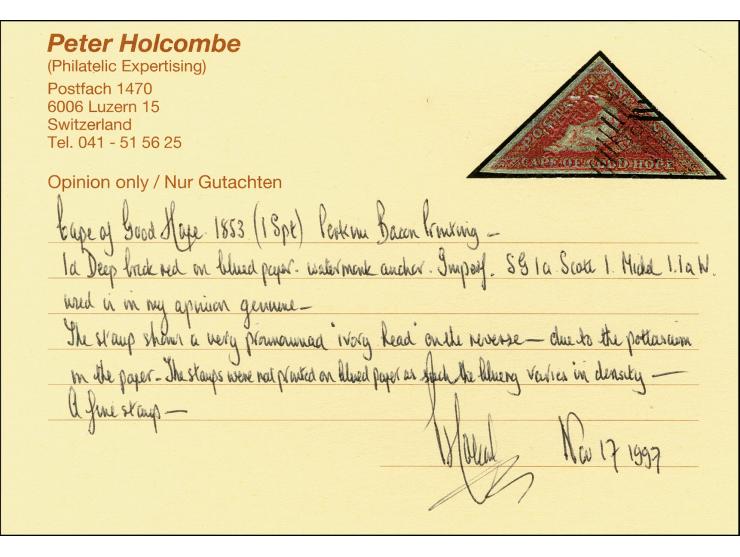 Peter Holcombe
(Philatelic Expertising)
Postfach 1470
6006 Luzern 15
Switzerland
Tel. 041 - 51 56 25
POSTAGE ONE PENNY
CAPE OF GOOD HOPE
Opinion only / Nur Gutachten
Cape of Good Hope 1853 (1 Spt) Perkins Bacon Printing —
1d Deep brick red on blued paper. watermark anchor. Imperf. SG 1a Scott 1. Michel 1.I a W.
used is in my opinion genuine —
The stamp shows a very pronounced 'ivory head' on the reverse — due to the pottassium
in the paper — The stamps were not printed on blued paper as such the blueing varies in density —
A fine stamp —
Nov 17 1997